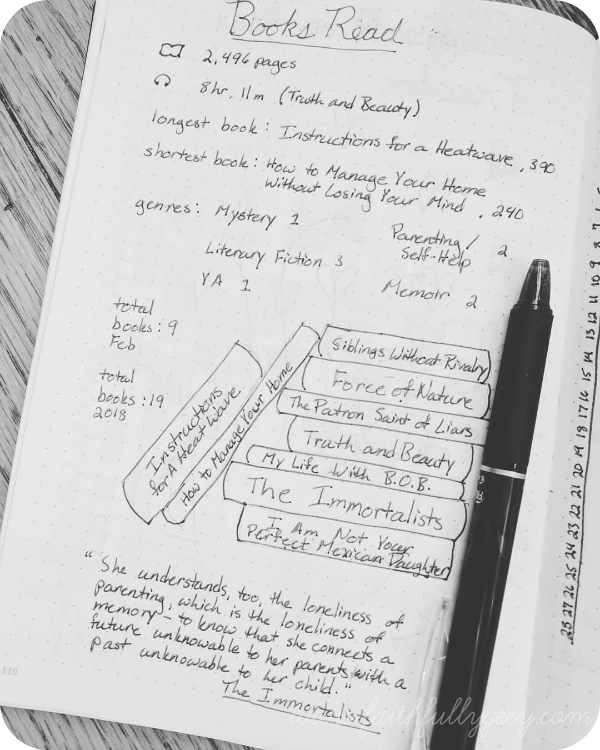 Books Read
2,496 pages
8hr, 11m (Truth and Beauty)
longest book: Instructions for a Heatwave, 390
shortest book: How to Manage Your Home
Without Losing Your Mind, 240
genres: Mystery 1
Parenting/
Self-Help 2
Literary Fiction 3
YA 1
Memoir 2
total
books: 9
Feb
total
books: 19
2018
Instructions
for A Heat Wave
How to Manage Your Home
Siblings Without Rivalry
Force of Nature
The Patron Saint of Liars
Truth and Beauty
My Life With B.O.B.
The Immortalists
I Am Not Your
Perfect Mexican Daughter
"She understands, too, the loneliness of
parenting, which is the loneliness of
memory - to know that she connects a
future unknowable to her parents with a
past unknowable to her child."
The Immortalists
110
7 8 9 10 11 12 13 14 15 16 17 18 19 20 21 22 23 24 25 26 27 28